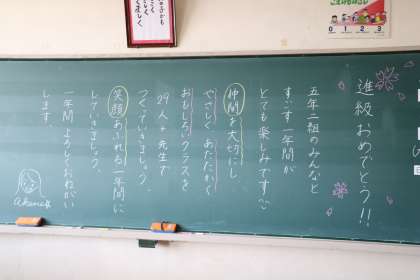 進級おめでとう!!
五年二組のみんなと
すごす一年間が
とても楽しみです
仲間を大切にし
やさしく あたたかく
おもしろいクラスを
29人+先生で
つくっていきましょう。
笑顔あふれる一年間に
していきましょう。
一年間よろしくおねがい
します
0 1 2 3